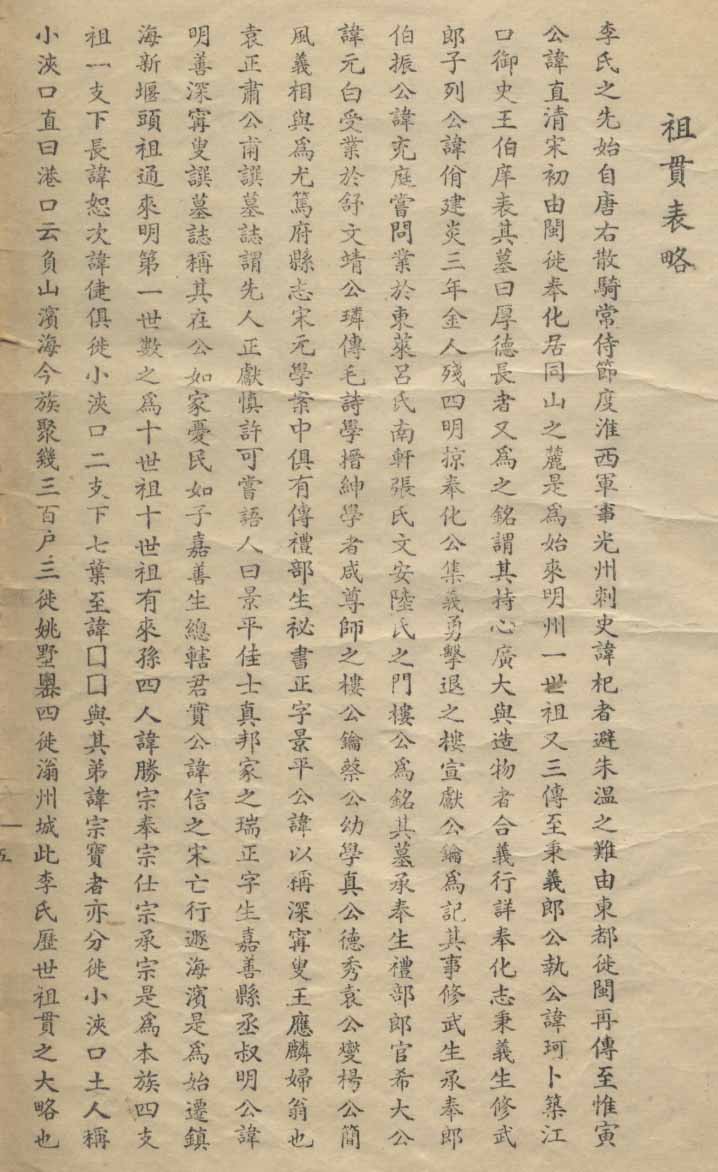 祖貫表略
李氏之先始自唐右散騎常侍節度淮西軍事光州刺史諱杞者避朱溫之難由東都徙閩再傳至惟寅
公諱直清宋初由閩徙奉化居同山之麓是為始來明州一世祖又三傳至秉義郎公執公諱珂卜築江
口御史王伯庠表其墓曰厚德長者又為之銘謂其持心廣大與造物者合義行詳奉化志秉義生修武
郎子列公諱佾建炎三年金人殘四明掠奉化公集義勇擊退之樓宣獻公鑰為記其事修武生承奉郎
伯振公諱充庭嘗問業於東萊呂氏南軒張氏文安陸氏之門樓公為銘其墓承奉生禮部郎官希大公
諱元白受業於舒文靖公璘傳毛詩學搢紳學者咸尊師之樓公鑰蔡公幼學真公德秀袁公燮楊公簡
風義相與為尤篤府縣志宋元學案中俱有傳禮部生祕書正字景平公諱以稱深寧叟王應麟婦翁也
袁正肅公甫譔墓誌謂先人正獻慎許可嘗語人曰景平佳士真邦家之瑞正字生嘉善縣丞叔明公諱
明善深寗叟譔墓誌稱其在公如家憂民如子嘉善生總轄君實公諱信之宋亡行遯海濱是為始遷鎮
海新堰頭祖通來明第一世數之為十世祖十世祖有來孫四人諱勝宗奉宗仕宗承宗是為本族四支
祖一支下長諱恕次諱倢俱徙小浹口二支下七葉至諱囗囗與其弟諱宗寶者亦分徙小浹口土人稱
小浹口直曰港口云負山濱海今族聚幾三百户三徙姚墅嶴四徙滃州城此李氏歷世祖貫之大略也
一
五